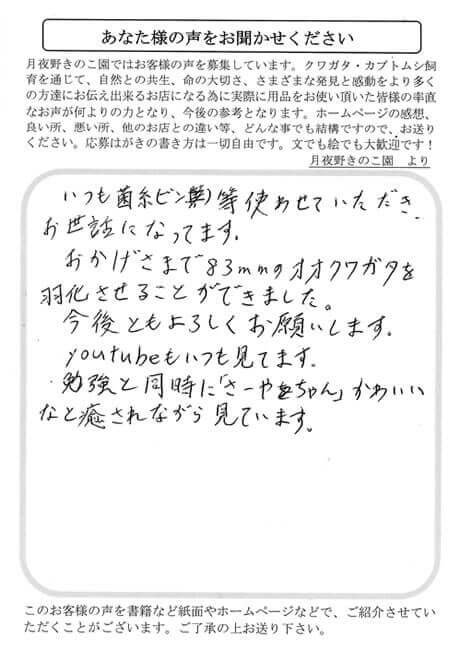 あなた様の声をお聞かせください
月夜野きのこ園ではお客様の声を募集しています。クワガタ・カブトムシ飼
育を通じて、自然との共生、命の大切さ、さまざまな発見と感動をより多く
の方達にお伝え出来るお店になる為に実際に用品をお使い頂いた皆様の率直
なお声が何よりの力となり、今後の参考となります。ホームページの感想、
良い所、悪い所、他のお店との違い等、どんな事でも結構ですので、お送り
ください。応募はがきの書き方は一切自由です。文でも絵でも大歓迎です！
月夜野きのこ園　より
いつも菌糸ビン等使わせていただき、
お世話になってます。
おかげさまで83mmのオオクワガタを
羽化させることができました。
今後ともよろしくお願いします。
youtubeもいつも見てます。
勉強と同時に「さーやちゃん」かわいい
なと癒されながら見ています。
このお客様の声を書籍など紙面やホームページなどで、ご紹介させてい
ただくことがございます。ご了承の上お送り下さい。